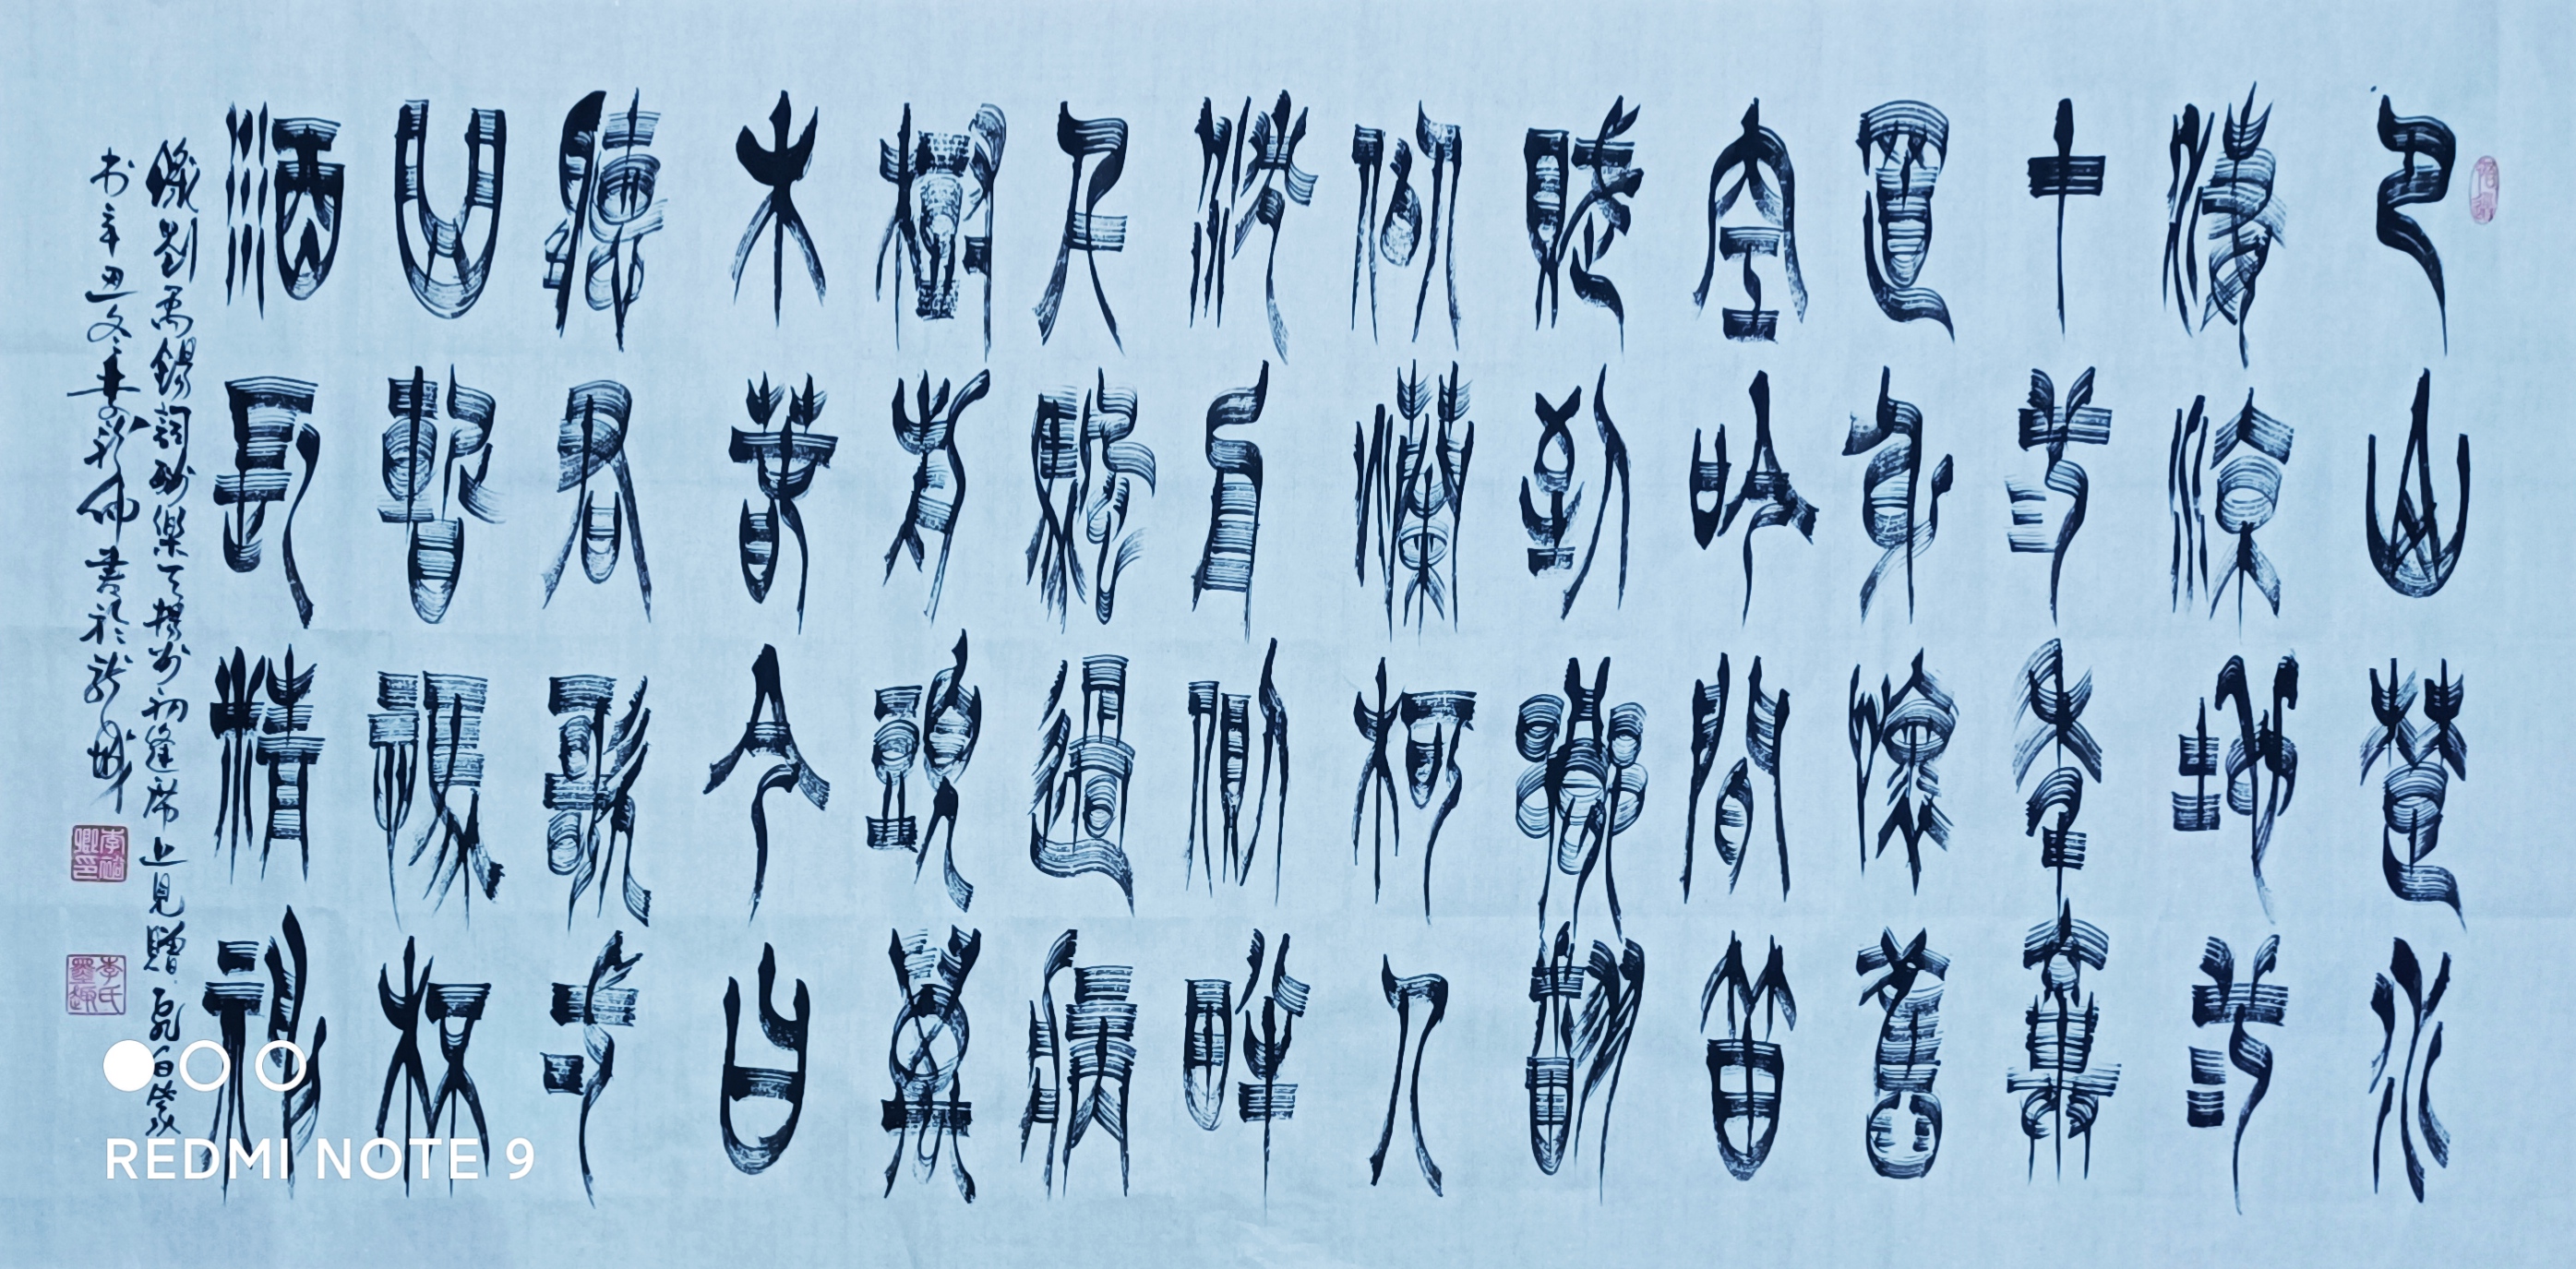 巴山楚水
淒涼地弍
十弎年棄
置身懷舊
空吟聞笛
賦到鄉翻
似爛柯人
沉舟側畔
千帆過病
樹前頭萬
木春今日
聽君歌弌
曲暫憑杯
酒長精神
錄劉禹錫詞酬樂天揚州初逢席上見贈
书辛丑之冬書於龍城
李氏墨趣
REDMI NOTE 9